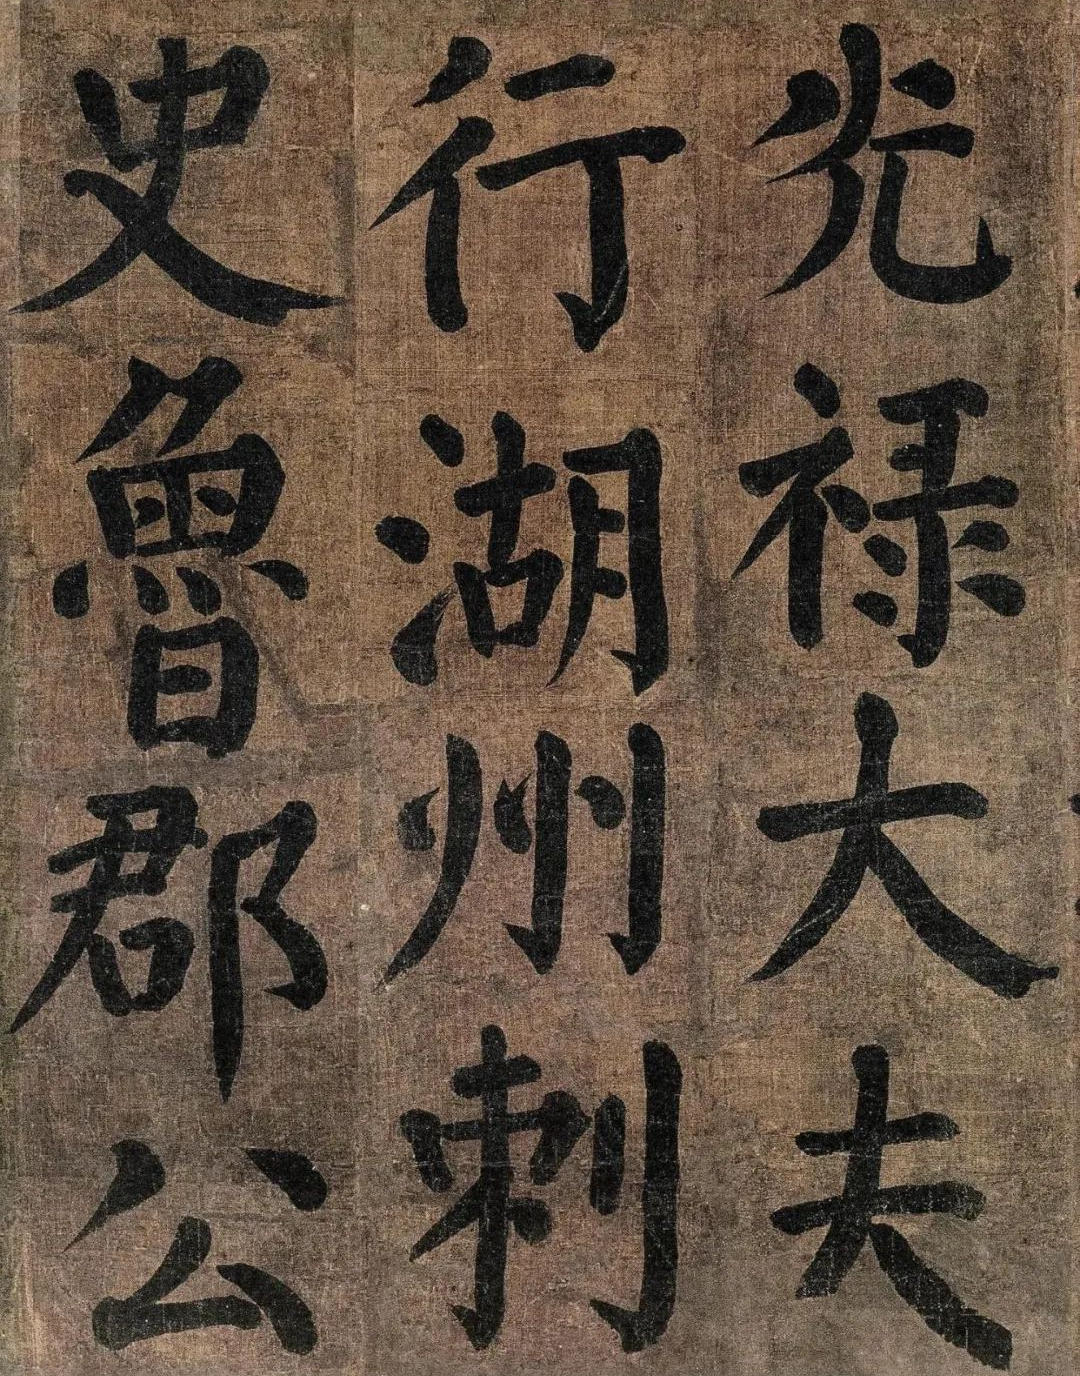 光禄大夫
行湖州刺
史魯郡公